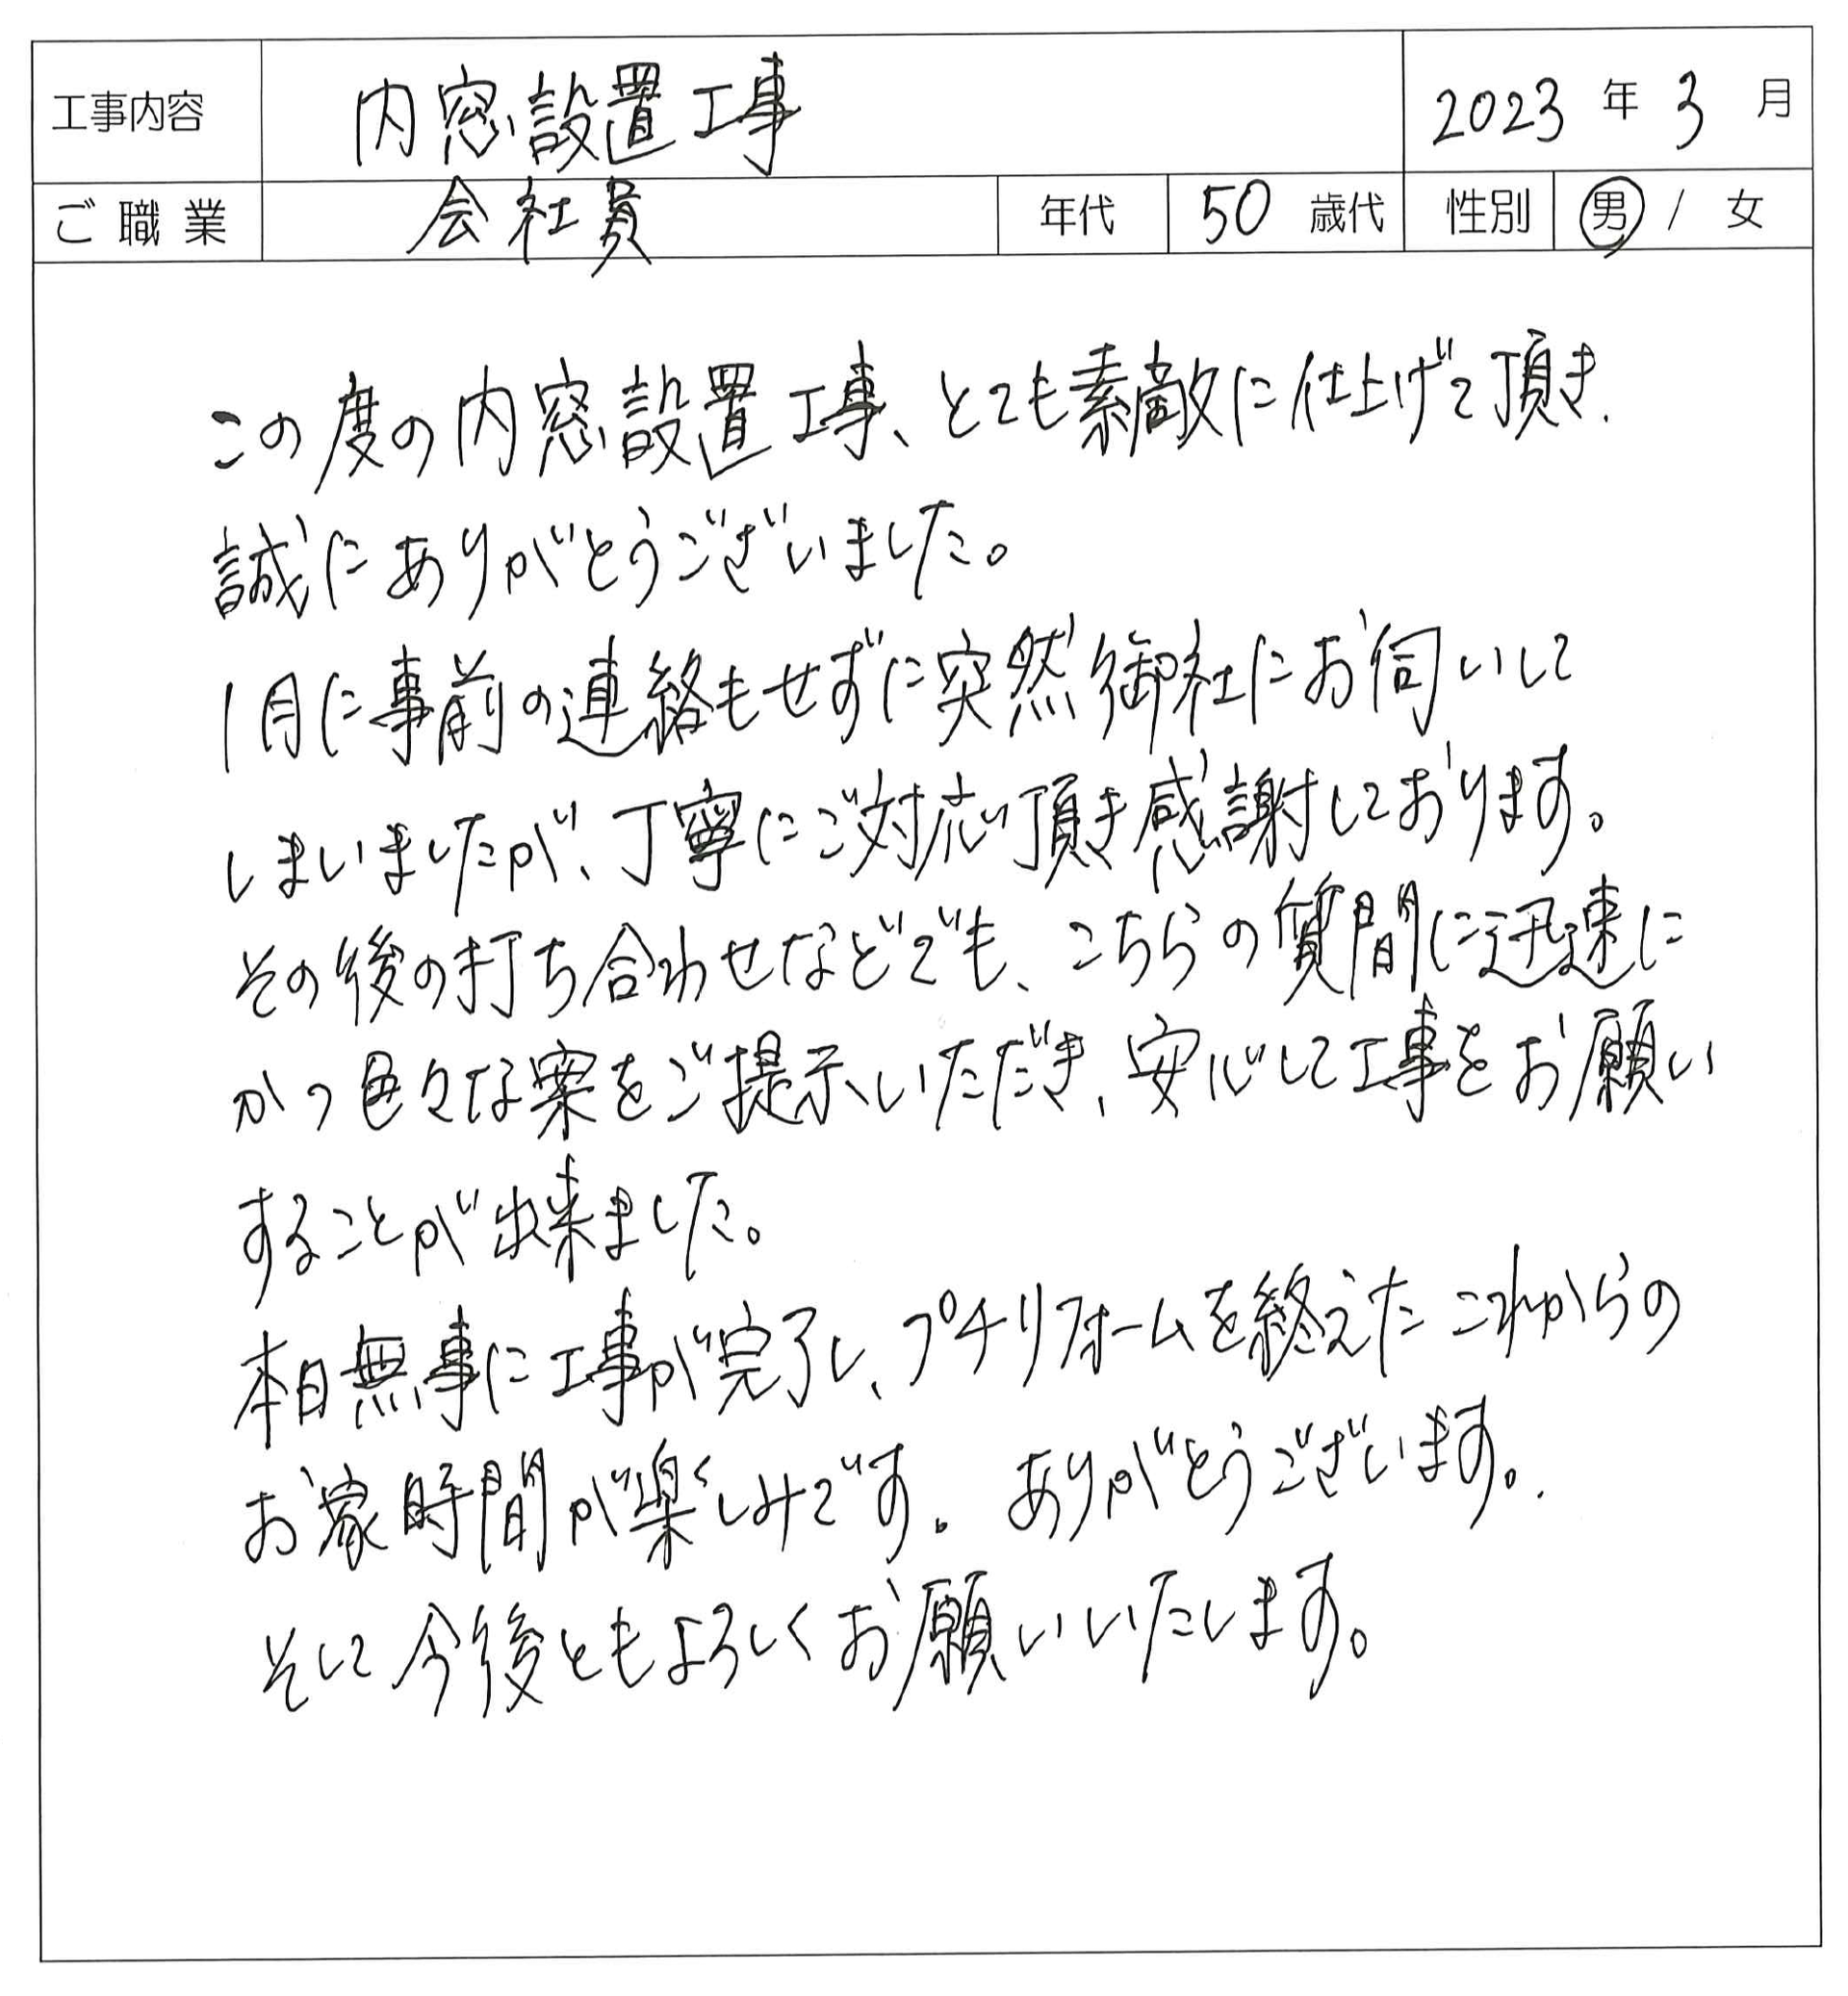 工事内容 内窓設置工事 2023年3月
ご職業 会社員 年代 50歳代 性別 男/女
この度の内窓設置工事、とても素敵に仕上げて頂き、
誠にありがとうございました。
1月に事前の連絡もせずに突然御社にお伺いして
しまいましたが、丁寧にご対応頂き感謝しております。
その後の打ち合わせなどでも、こちらの質問に迅速に
かつ色々な案をご提示いただき、安心して工事をお願い
することが出来ました。
本日無事に工事が完了し、プチリフォームを終えたこれからの
お家時間が楽しみです。ありがとうございます。
そして今後ともよろしくお願いいたします。